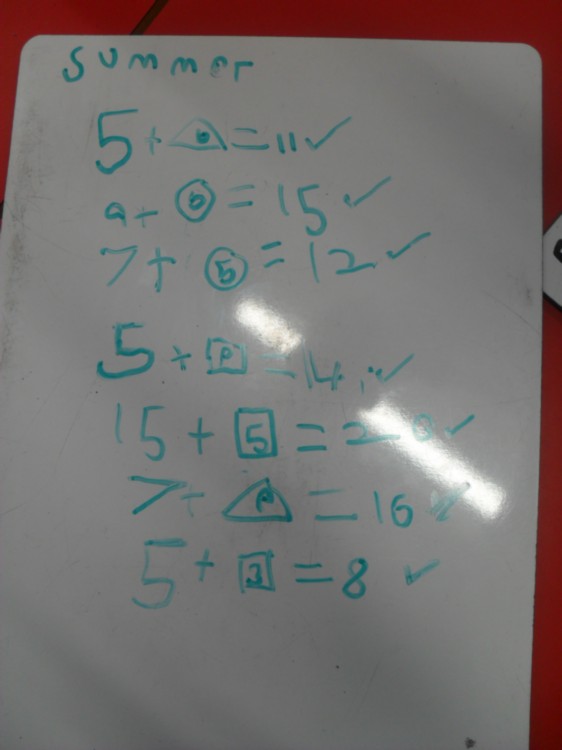 summer
5 + 6 = 11 ✓
9 + 6 = 15 ✓
7 + 5 = 12 ✓
5 + 9 = 14 ✓
15 + 5 = 20 ✓
7 + 9 = 16 ✓
5 + 3 = 8 ✓